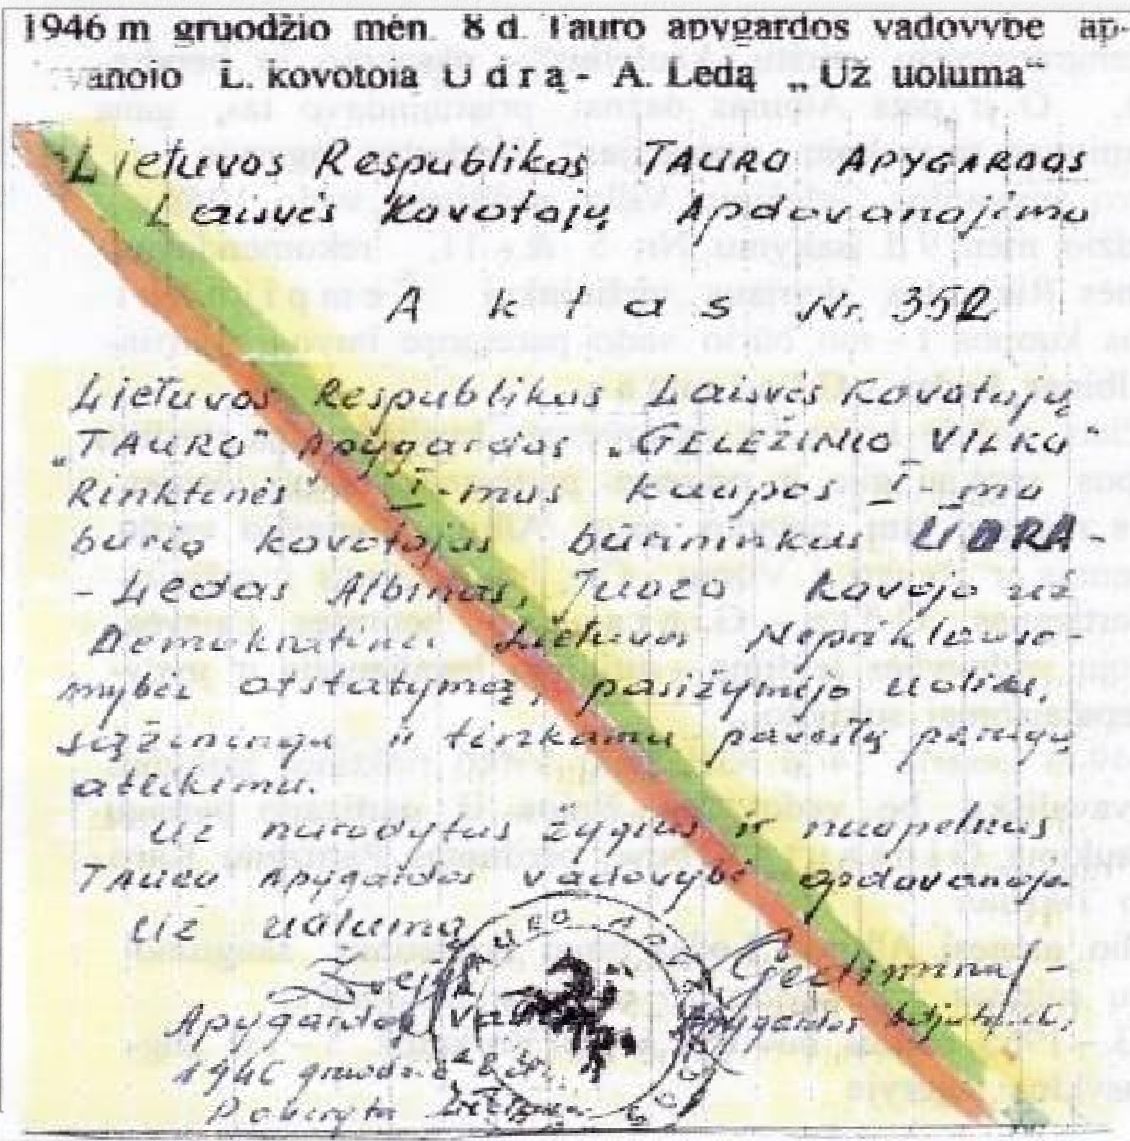 1946 m gruodžio mėn. 8 d. Tauro apygardos vadovybė ap-
vanojo L. kovotoją Udrą - A. Ledą „Už uolumą“
Lietuvos Respublikos TAURO APYGARDOS
Laisvės Kovotojų Apdovanojimo
Aktas Nr. 352
Lietuvos Respublikos Laisvės Kovotojų
„TAURO“ Apygardos „GELEŽINIO VILKO“
Rinktinės I-mos kuopos I-mo
būrio kovotojas būrininkas ŪDRA-
- Ledas Albinas, Juozo kovojo už
Demokratinės Lietuvos Nepriklauso-
mybės atstatymą, pasižymėjo uoliu,
sąžiningu ir tinkamu pavestų pareigų
atlikimu.
Už nurodytus žygius ir nuopelnus
TAURO Apygardos vadovybė apdovanoja
Už uolumą
Gediminas -
Apygardos Apygardos adjutantas
1946 gruodžio 8